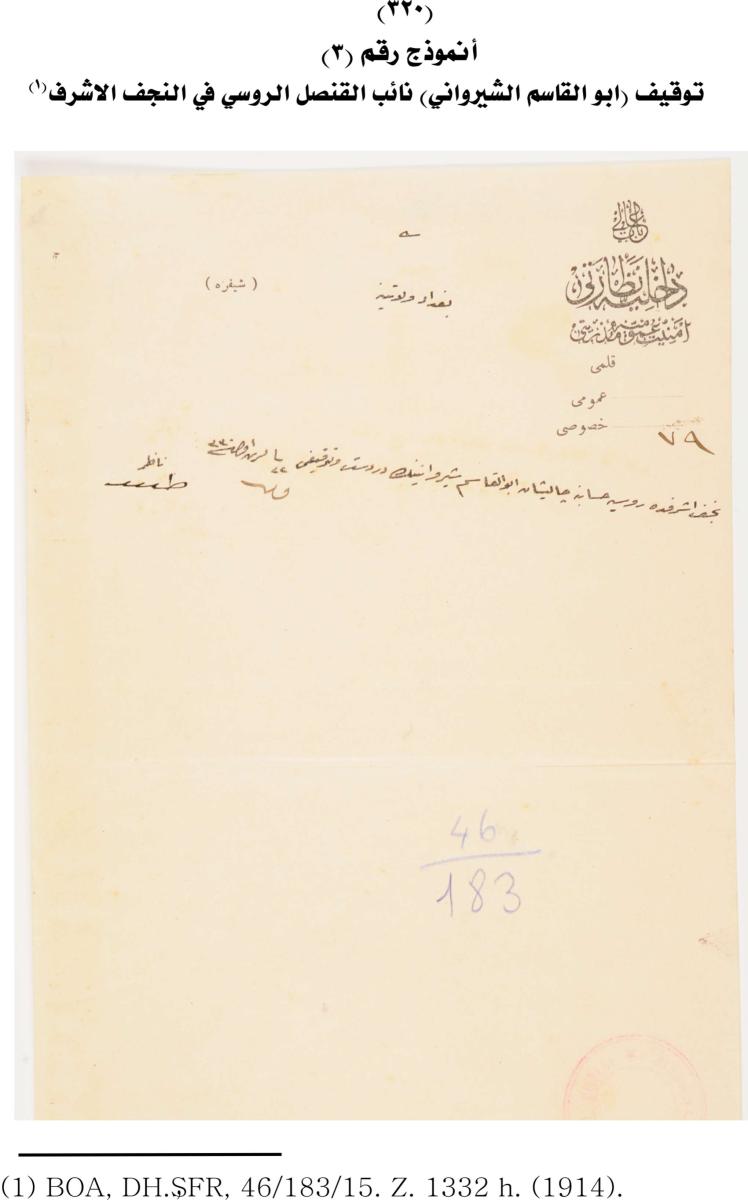 (٣٢٠)
أنموذج رقم (٣)
توقيف (ابو القاسم الشيرواني) نائب القنصل الروسي في النجف الاشرف(١)
باب عالی
داخلیه نظارتی
امنیت عمومیه مدیریتی
قلمی
عمومی
خصوصی
٧٩
(شیفره)
بغداد ولايتنه
نجف اشرفده روسيه حسابنه چاليشان ابوالقاسم شيروانينك دردست وتوقيفى
ناظر
طلعت
46
183
(1) BOA, DH.ŞFR, 46/183/15. Z. 1332 h. (1914).